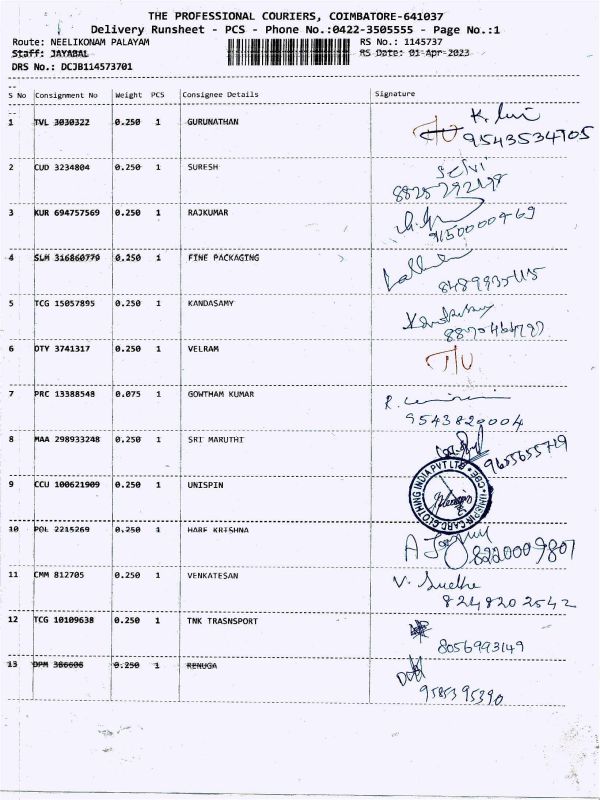 THE PROFESSIONAL COURIERS, COIMBATORE-641037
Delivery Runsheet - PCS - Phone No.:0422-3505555 - Page No.:1
Route: NEELIKONAM PALAYAM RS No.: 1145737
Staff: JAYABAL RS Date: 01-Apr-2023
DRS No.: DCJB114573701
S No Consignment No Weight PCS Consignee Details Signature
1 TVL 3030322 0.250 1 GURUNATHAN
T/U 9543534705
2 CUD 3234804 0.250 1 SURESH Selvi
3 KUR 694757569 0.250 1 RAJKUMAR
9150000469
4 SLM 316860779 0.250 1 FINE PACKAGING
5 TCG 15057895 0.250 1 KANDASAMY
6 OTY 3741317 0.250 1 VELRAM T/U
7 PRC 13388548 0.075 1 GOWTHAM KUMAR
9543820004
8 MAA 298933248 0.250 1 SRI MARUTHI
9655655719
9 CCU 100621909 0.250 1 UNISPIN
CARD CLOTHING INDIA PVT LTD CBE
10 POL 2215269 0.250 1 HARE KRISHNA
8220009807
11 CMM 812705 0.250 1 VENKATESAN
8248202542
12 TCG 10109638 0.250 1 TNK TRASNSPORT
8056993149
13 DPM 386606 0.250 1 RENUGA
9585395390